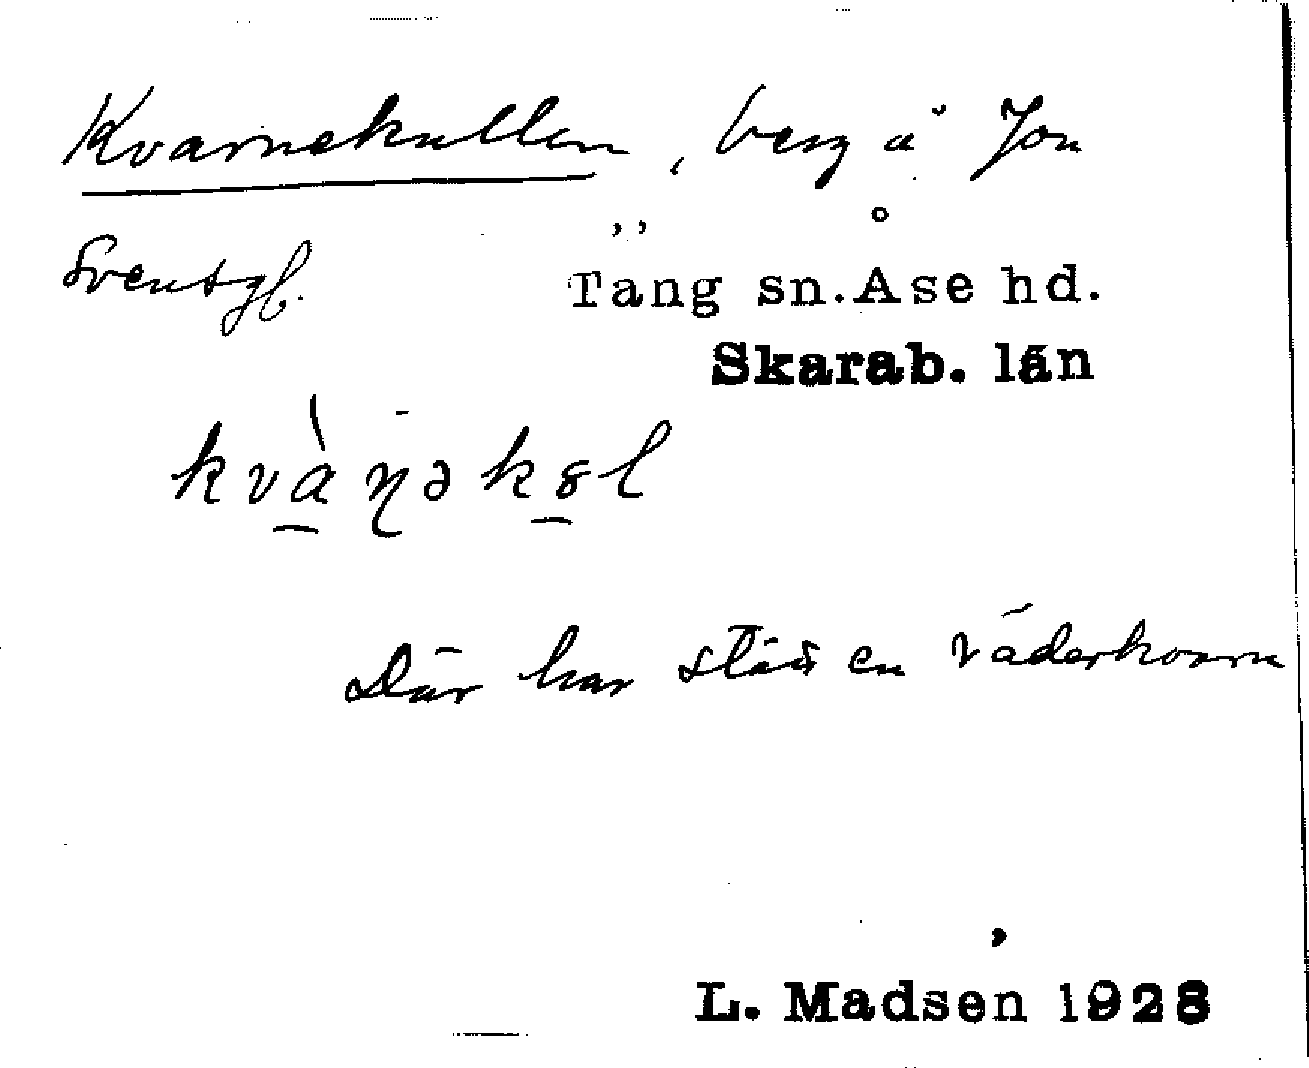 Kvarnekullen, berg å Jon
Svensgb.
Täng sn. Åse hd.
Skarab. län
kvàɳəkȣl
Där har stått en väderkvarn
L. Madsen 1928